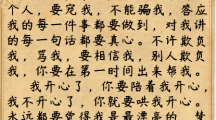 个人，要宠我，不能骗我，答应
我的每一件事都要做到，对我讲
的每一句话都要真心。不许欺负
我，骂我，要相信我，别人欺负
我，你要在第一时间出来帮我。
我开心了，你要陪着我开心，
我不开心了，你就要哄我开心。
永远都要觉得我是最漂亮的，梦